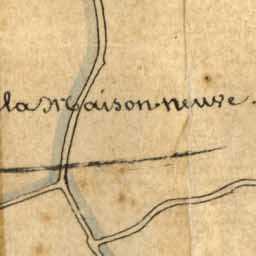 la Maison neuve.